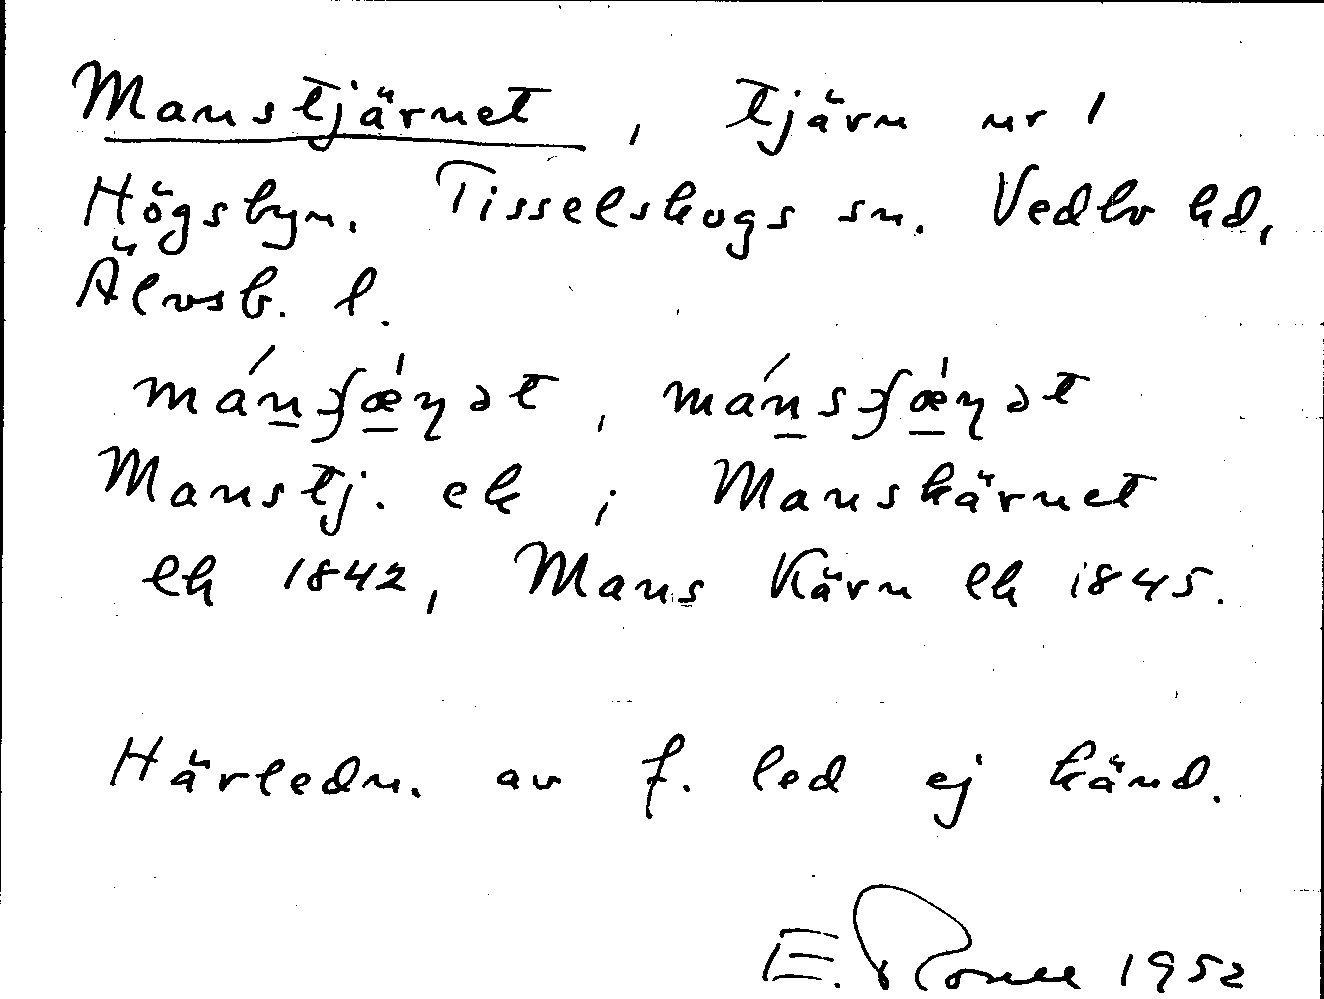 Manstjärnet, tjärn nr 1
Högsbyn. Tisselskogs sn. Vedbo hd,
Älvsb. l.
Manstj. ek; Manskärnet
lh 1842, Mans Kärn lh 1845.
Härledn. av f. led ej känd.
E. 1952